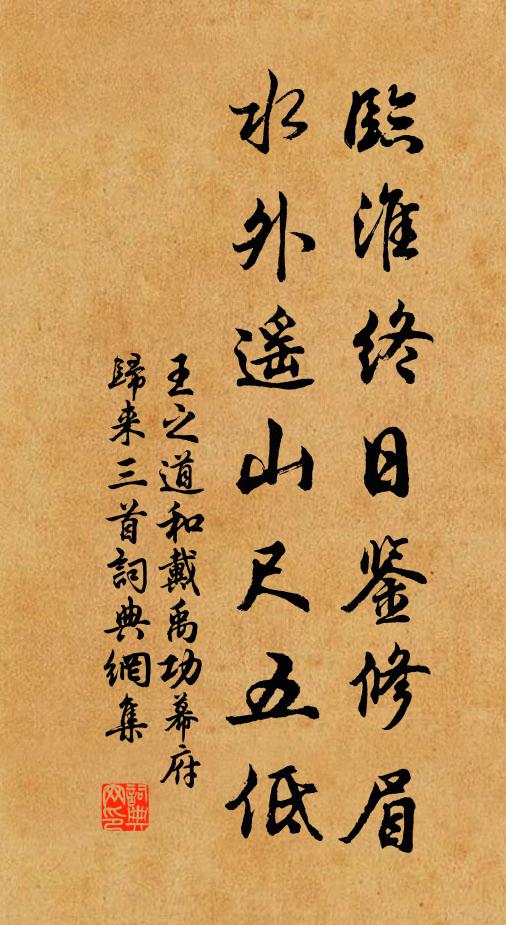 臨淮終日鉴修眉
水外遥山尺五低
王之道和戴禹功幕府
歸来三首詞典網集
詞典
网印